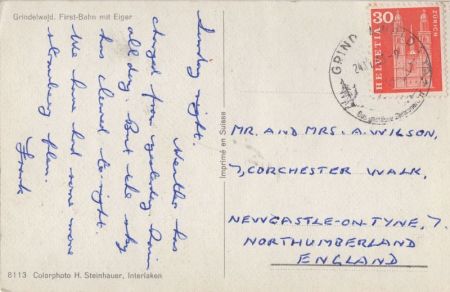 Grindelwald. First-Bahn mit Eiger
Sunday night.
Weather has
changed from yesterday. Rain
all day. But the sky
has cleared to-night.
We have had some more
Frank
8113 Colorphoto H. Steinhauer, Interlaken
Imprimé en Suisse
30
HELVETIA
ZÜRICH
GRIND
MR. AND MRS. A. WILSON,
7, CORCHESTER WALK,
NEWCASTLE-ON-TYNE, 7.
NORTHUMBERLAND
ENGLAND